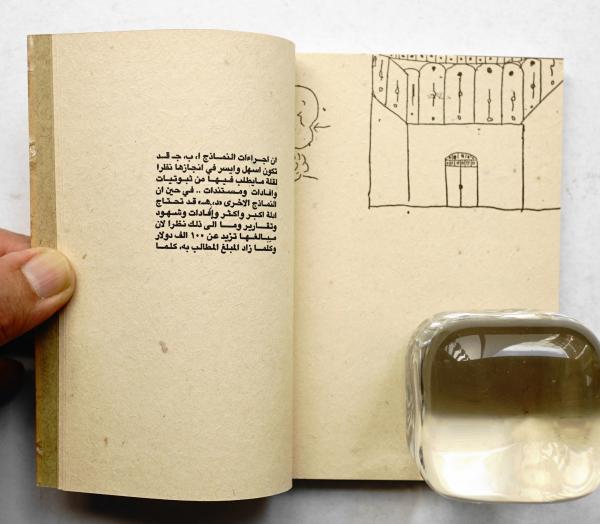 ان اجراءات النماذج ا، ب، جـ قد
تكون اسهل وايسر في انجازها نظرا
لقلة مايطلب فيها من ثبوتيات
وافادات ومستندات .. في حين ان
النماذج الاخرى «د، هـ» قد تحتاج
ادلة اكبر واكثر وإفادات وشهود
وتقارير وما الى ذلك نظرا لان
مبالغها تزيد عن ١٠٠ الف دولار
وكلما زاد المبلغ المطالب به، كلما